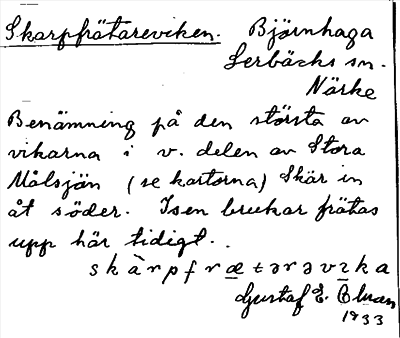 Skarpfrätareviken. Björnhaga
Lerbäcks sn.
Närke
Benämning på den största av
vikarna i v. delen av Stora
Målsjön (se kartorna) Skär in
åt söder. Isen brukar frätas
upp här tidigt.
skàrpfrætərəvɪka
Gustaf E.
1933